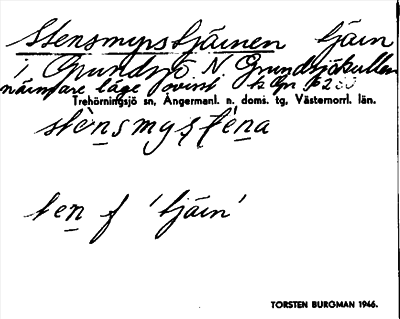 Stensmyrstjäinen tjäin
i Grundsjö N. Grundsjökullen
närmare läge ovisst
Trehörningsjö sn, Ångermanl. n. doms. tg, Västernorrl. län.
stènsmysṭèna
ten f 'tjäin'
TORSTEN BURGMAN 1946.